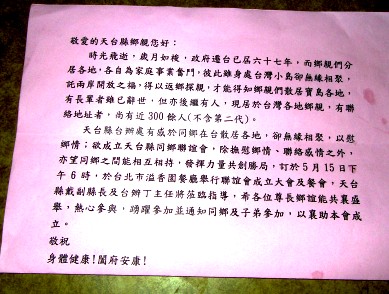 敬愛的天台縣鄉親您好：
時光飛逝，歲月如梭，政府遷台已屆六十七年，而鄉親們分
居各地，各自為家庭事業奮鬥，彼此雖身處台灣小島卻無緣相聚，
託兩岸開放之福，得以返鄉探親，才能得知鄉親們散居寶島各地，
有長輩者雖已辭世，但亦後繼有人，現居於台灣各地鄉親，有聯
絡地址者，尚有近300餘人(不含第二代)。
天台縣台辦處有感於同鄉在台散居各地，卻無緣相聚，以慰
鄉情；欲成立天台縣同鄉聯誼會，除撫慰鄉情、聯絡感情之外，
亦望同鄉之間能相互相持，發揮力量共創勝局，訂於5月15日下
午6時，於台北市溢香園餐廳舉行聯誼會成立大會及餐會，天台
縣戴副縣長及台辦丁主任將蒞臨指導，希各位尊長鄉誼能共襄盛
舉，熱心參與，踴躍參加並通知同鄉及子弟參加，以襄助本會成
立。
敬祝
身體健康！闔府安康！